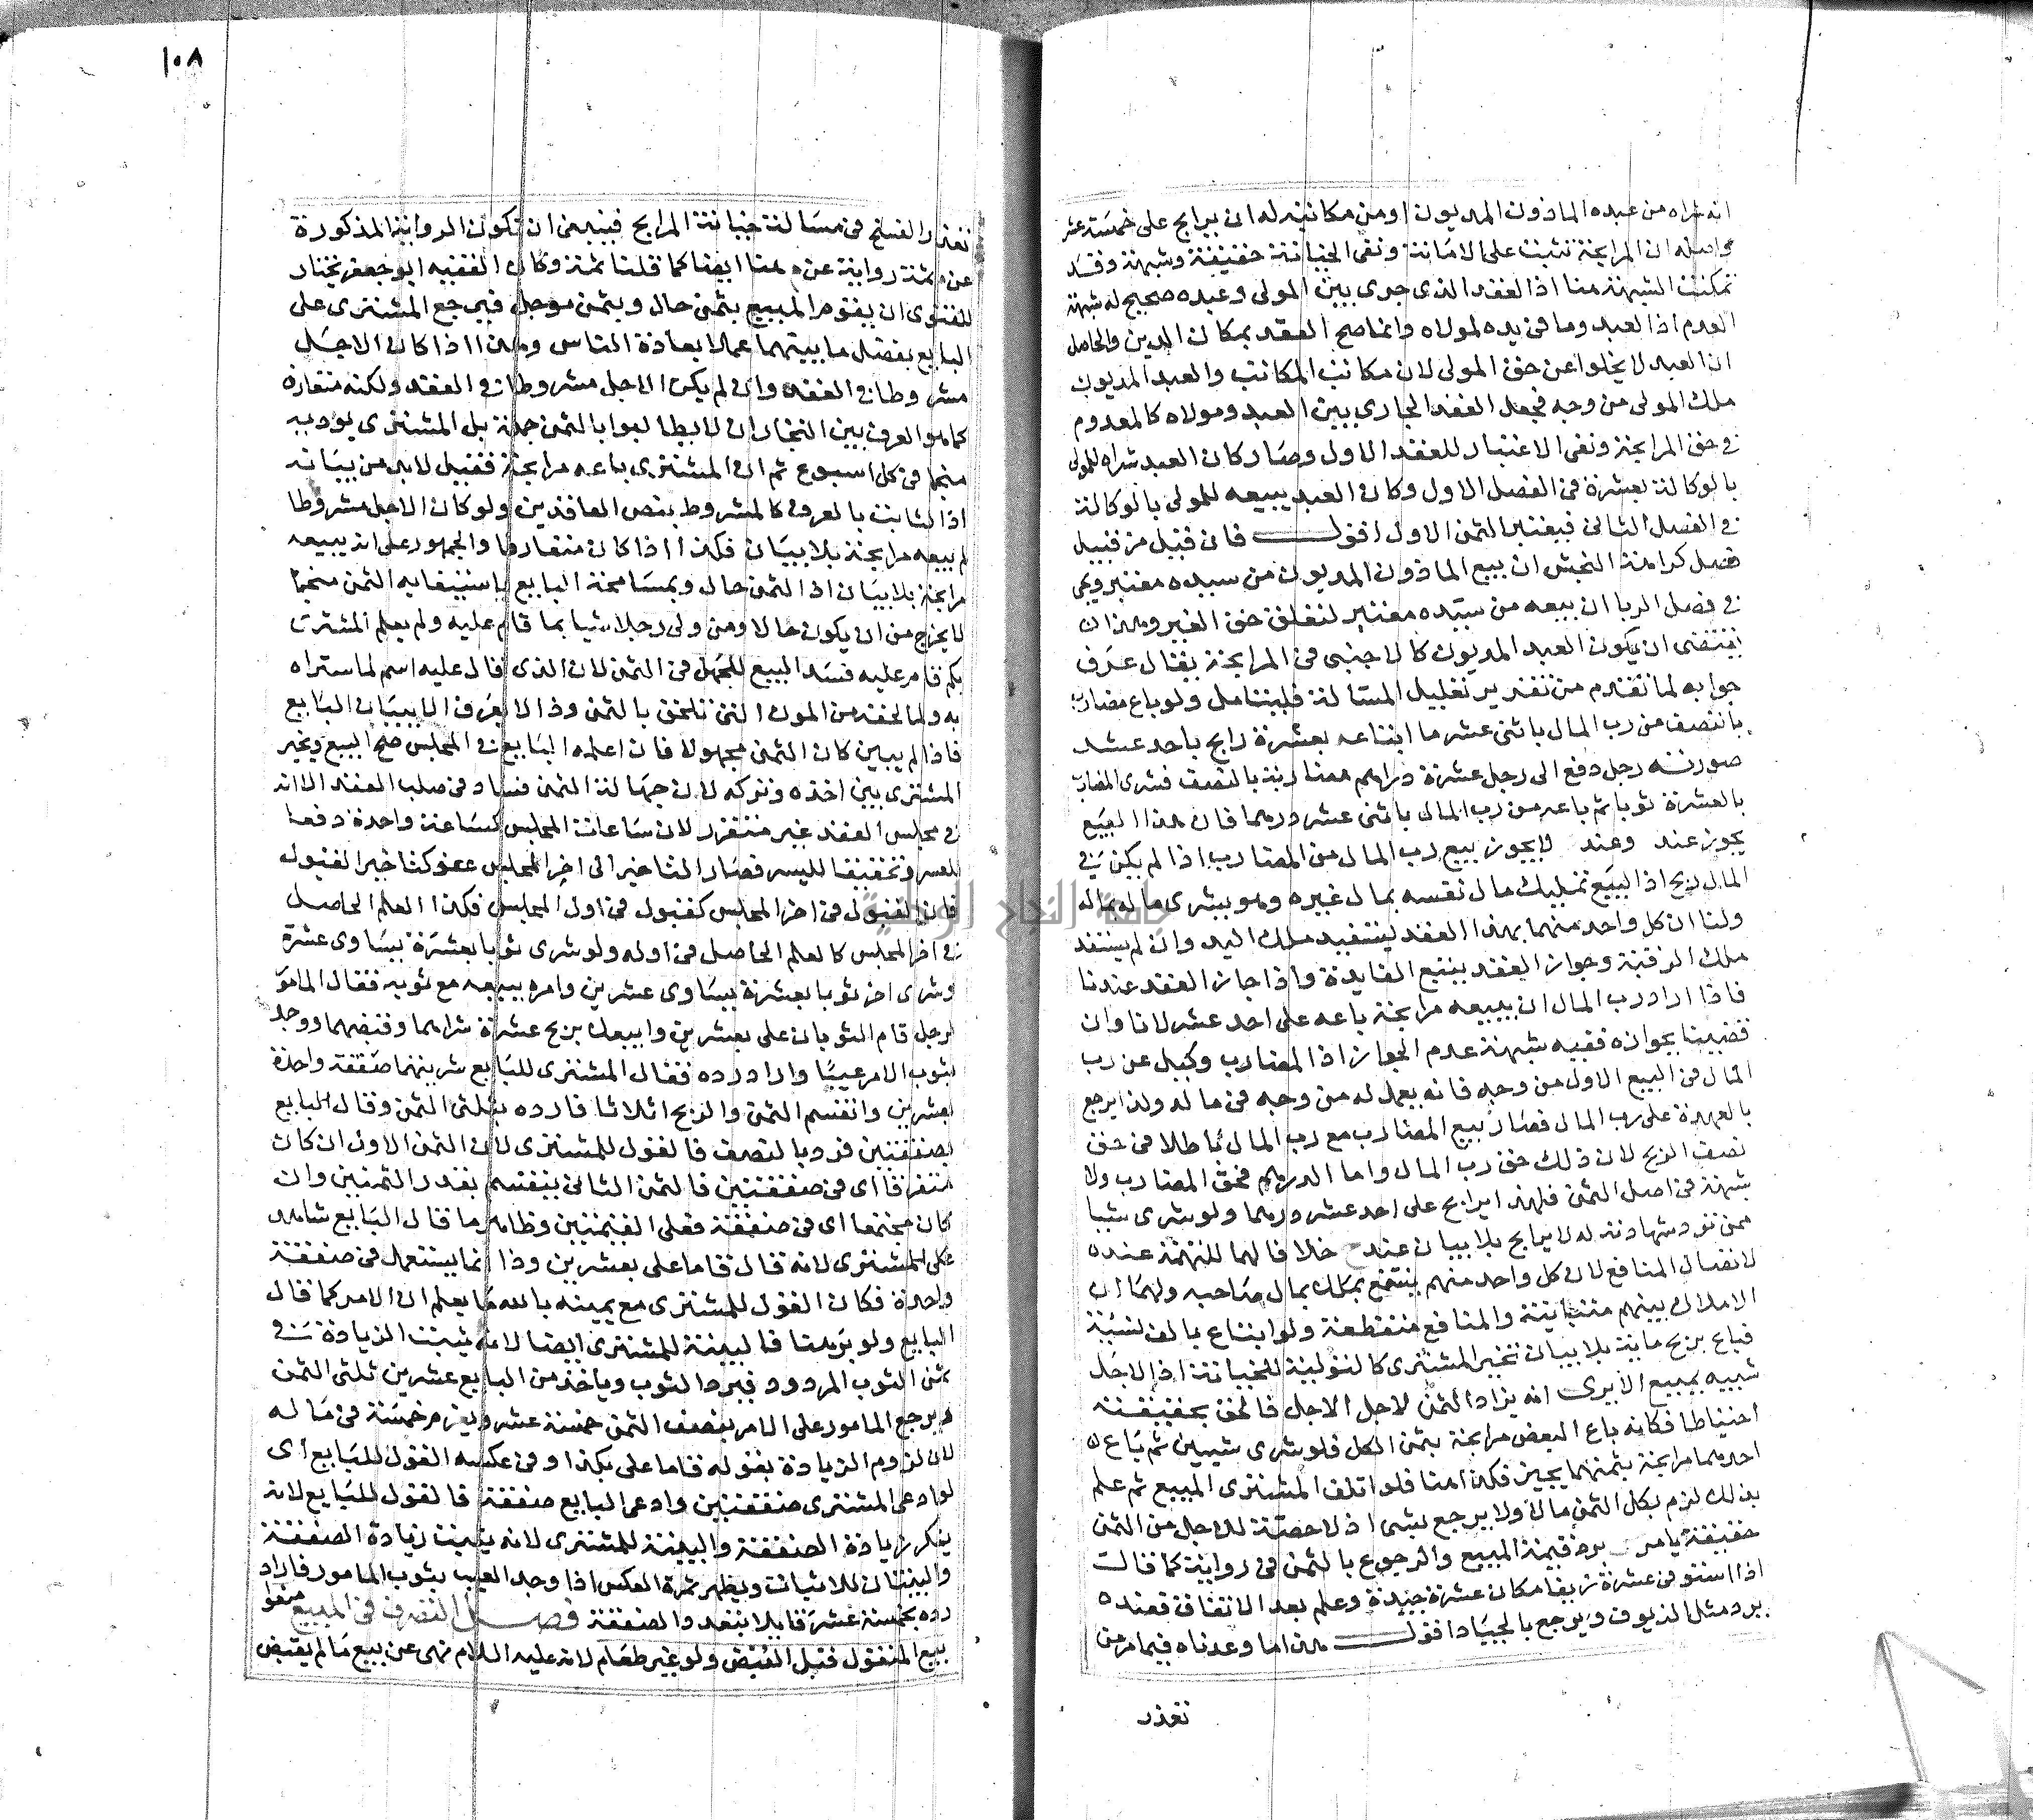 انه شراه من عبده الماذون المديون اومن مكاتبه له ان يرابح على خمسة عشر
اصله ان المرابحة تثبت على الامانة ونفي الخيانة حقيقة وشبهة وقد
تمكنت الشبهة هنا اذ العقد الذى جرى بين المولى وعبده صحيح له شبهة
العدم اذ العبد وما فى يده لمولاه وانما صح العقد بمكان الدين والحاصل
ان العبد لا يخلوا عن حق المولى لان مكاتب المكاتب والعبد المديون
ملك المولى من وجه فجعل العقد الجارى بين العبد ومولاه كالمعدوم
فى حق المرابحة ونفى الاعتبار للعقد الاول وصار كان العبد شراه للمولى
بالوكالة بعشرة فى الفصل الاول وكان العبد يبيعه للمولى بالوكالة
فى الفصل الثانى فيعتبر الثمن الاول اقول فان قيل من قبيل
فصل كراهة النجش ان بيع الماذون المديون من سيده معتبر
فى فصل الربا ان بيعه من سيده معتبر لتعلق حق الغير وهذان
يقتضى ان يكون العبد المديون كالاجنبى فى المرابحة يقال عرف
جوابه لما تقدم من تقدير تعليل المسالة فليتامل ولو باع مضارب
بالنصف من رب المال باثنى عشر ما ابتاعه بعشرة رابح باحد عشر
صورته رجل دفع الى رجل عشرة دراهم مضاربة بالنصف فشرى المضارب
بالعشرة ثوبا ثم باعه من رب المال باثنى عشر درهما فان هذا البيع
يجوز عند وعند لا يجوز بيع رب المال من المضارب اذا لم يكن فى
المال ربح اذ البيع تمليك مال نفسه بمال غيره وهو يشرى ماله بماله
ولنا ان كل واحد منهما بهذا العقد يستفيد ملك اليد وان لم يستفد
ملك الرقبة وجواز العقد يتبع الفايدة واذا جاز العقد عندنا
فاذا اراد رب المال ان يبيعه مرابحة باعه على احد عشر لانا وان
قضينا بجوازه ففيه شبهة عدم الجواز اذ المضارب وكيل عن رب
المال فى البيع الاول من وجه فانه يعمل له من وجه فى ماله ولذا يرجع
بالعهدة على رب المال فصار بيع المضارب مع رب المال باطلا فى حق
نصف الربح لان ذلك حق رب المال واما الدرهم فحق المضارب ولا
شبهة فى اصل الثمن فلهذا يرابح على احد عشر درهما ولو شرى شيا
ممن ترد شهادته له لا يرابح بلا بيان عند خلافا لهما للتهمة عنده
لاتصال المنافع لان كل واحد منهم ينتفع بمال صاحبه ولهما ان
الاملاك بينهم متباينة والمنافع منقطعة ولو ابتاع بالف نسئة
فباع بربح ماية بلا بيان تخير المشترى كالتولية للخيانة اذ الاجل
شبيه بمبيع الا يرى انه يزاد الثمن لاجل الاجل فالحق بحقيقته
احتياطا فكانه باع البعض مرابحة بثمن الكل فلو شرى شيين ثم باع
احدهما مرابحة بثمنهما يجيز فكذا هنا فلو اتلف المشترى المبيع ثم علم
بذلك لزم بكل الثمن حالا ولا يرجع بشى اذ لا حصة للاجل من الثمن
حقيقة برد قيمة المبيع والرجوع بالثمن فى رواية كما قالت
اذا استوفى عشرة زيفا مكان عشرة جيدة وعلم بعد الانفاق فعنده
يرد مثل الزيوف ويرجع بالجياد اقول هذا ما وعدناه فيما مر من
تعذر
١٠٨
تعذر الفسخ فى مسالة خيانة المرابح فينبغى ان تكون الرواية المذكورة
عن ثمة رواية عن هنا ايضا كما قلنا ثمة وكان الفقيه ابو جعفر يختار
للفتوى ان يقوم المبيع بثمن حال وبثمن موجل فيرجع المشترى على
البايع بفضل ما بينهما عملا بعادة الناس وهذا اذا كان الاجل
مشروطا فى العقد وان لم يكن الاجل مشروطا فى العقد ولكنه متعارف
كما هو العرف بين التجار ان لا يطالبوا بالثمن جملة بل المشترى يوديه
منجما فى كل اسبوع ثم ان المشترى باعه مرابحة فقيل لا بد من بيانه
اذ الثابت بالعرف كالمشروط بنص العاقدين ولو كان الاجل مشروطا
لم يبيعه مرابحة بلا بيان فكذا اذا كان متعارفا والجمهور على انه يبيعه
مرابحة بلا بيان اذ الثمن حال وبمسامحة البايع باستيفايه الثمن منجما
لا يخرج من ان يكون حالا ومن ولى رجلا شيا بما قام عليه ولم يعلم المشترى
بكم قام عليه فسد البيع للجهل فى الثمن لان الذى قال عليه اسم لما ستراه
به ولما لحقه من المون التى تلحق بالثمن وذا لا يعرف الا ببيان البايع
فاذا لم يبين كان الثمن مجهولا فان اعلمه البايع فى المجلس صح البيع ويخير
المشترى بين اخذه وتركه لان جهالة الثمن فساد فى صلب العقد الا انه
فى مجلس العقد غير متقرر لان ساعات المجلس كساعة واحدة دفعا
للعسر وتحقيقا لليسر فصار التاخير الى اخر المجلس عفو كتاخير القبول
فان القبول فى اخر المجلس كقبول فى اول المجلس فكذا العلم الحاصل
فى اخر المجلس كالعلم الحاصل فى اوله ولو شرى ثوبا بعشرة يساوى عشرة
وشرى اخر ثوبا بعشرة يساوى عشرين وامره ببيعه مع ثوبه فقال المامور
لرجل قام الثوبان على بعشرين وابيعك بربح عشرة شراهما وقبضهما ووجد
بثوب الامر عيبا واراد رده فقال المشترى للبايع شريتهما صفقة واحدة
بعشرين وانقسم الثمن والربح اثلاثا فارده بثلثى الثمن وقال البايع
بصفقتين فرد بالنصف فالقول للمشترى لان الثمن الاول ان كان
متفرقا اى فى صفقتين فالثمن الثانى ينقسم بقدر الثمنين وان
كان مجتمعا اى فى صفقة فعلى القيمتين وظاهر ما قال البايع شاهد
على المشترى لانه قال قاما على بعشرين وذا انما يستعمل فى صفقة
واحدة فكان القول للمشترى مع يمينه بالله ما يعلم ان الامر كما قال
البايع ولو برهنا فالبينة للمشترى ايضا لانه يثبت الزيادة فى
ثمن الثوب المردود فيرد الثوب وياخذ من البايع عشرين ثلثى الثمن
ويرجع المامور على الامر بنصف الثمن خمسة عشر ويغرم خمسة فى ماله
لان لزوم الزيادة بقوله قاما على بكذا وفى عكسه القول للبايع اى
لو ادعى المشترى صفقتين وادعى البايع صفقة فالقول للبايع لانه
ينكر زيادة الصفقة والبينة للمشترى لانه يثبت زيادة الصفقة
والبينتان للاثبات ويظهر ثمرة العكس اذا وجد العيب بثوب المامور فاراد
رده بخمسة عشر قايلا بتعدد الصفقة فصل التصرف فى المبيع منعوا
بيع المنقول قبل القبض ولو غير طعام لانه عليه السلام نهى عن بيع ما لم يقبض
جامعة النجاح الوطنية